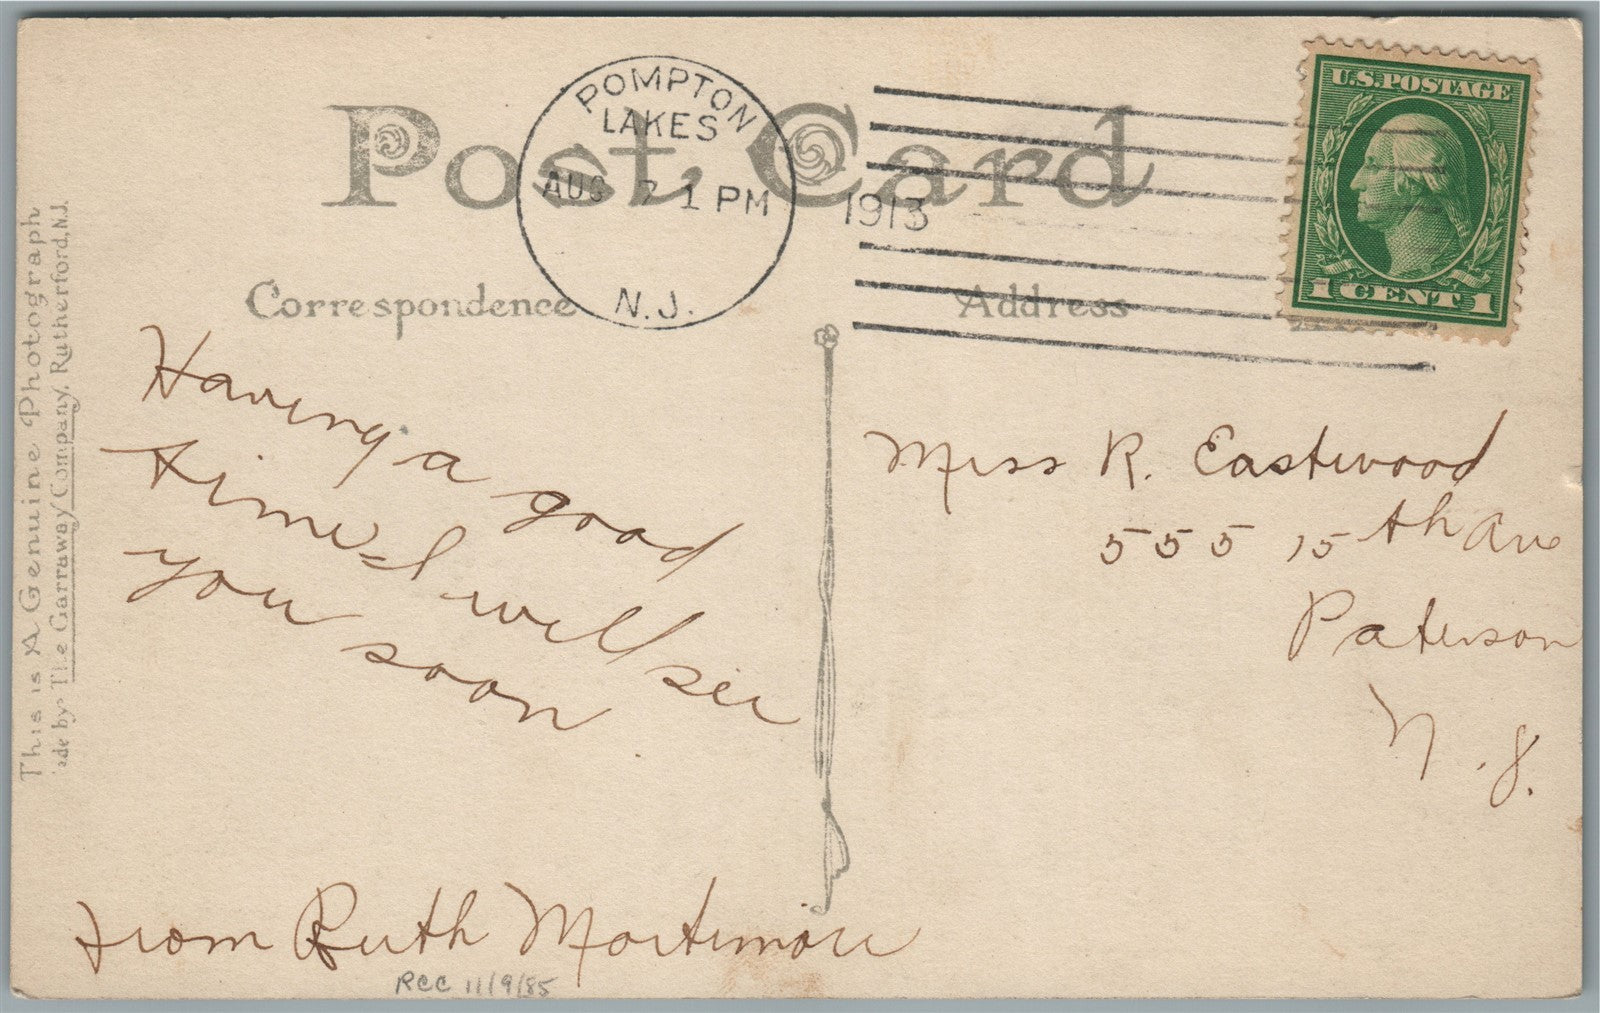 Post Card
POMPTON
LAKES
AUG 7 1 PM
N.J.
1913
U.S. POSTAGE
1 CENT 1
Correspondence
Address
This is A Genuine Photograph
ade by The Garraway Company, Rutherford, N.J.
Having a good
time - I will see
you soon
From Ruth Mortimore
RCC 11/9/85
Miss R. Eastwood
555 15th Ave
Paterson
N.J.